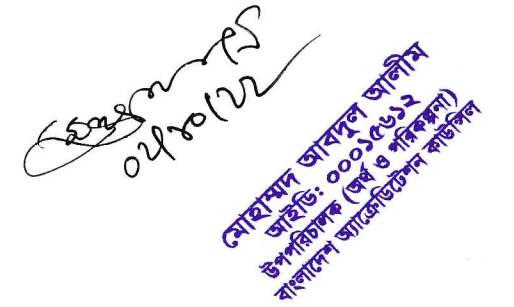 ০৫/১০/২২
মোহাম্মদ আবদুল আলীম
আইডি: ০০০১৫৬১২
উপপরিচালক (অর্থ ও পরিকল্পনা)
বাংলাদেশ অ্যাক্রেডিটেশন কাউন্সিল